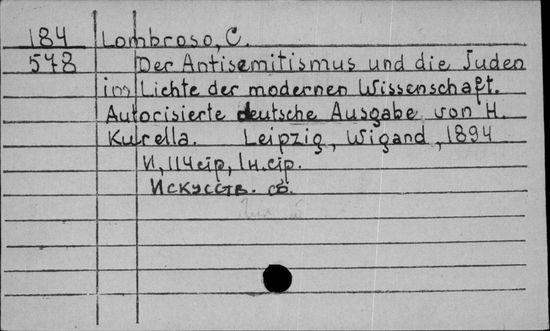 184 Lombroso, C.
578 Der Antisemitismus und die Juden
im Lichte der modernen Wissenschaft.
Autorisierte deutsche Ausgabe von H.
Kurella. Leipzig, Wigand, 1894
И, 114 стр, 1 н. стр.
Искусств. сб.